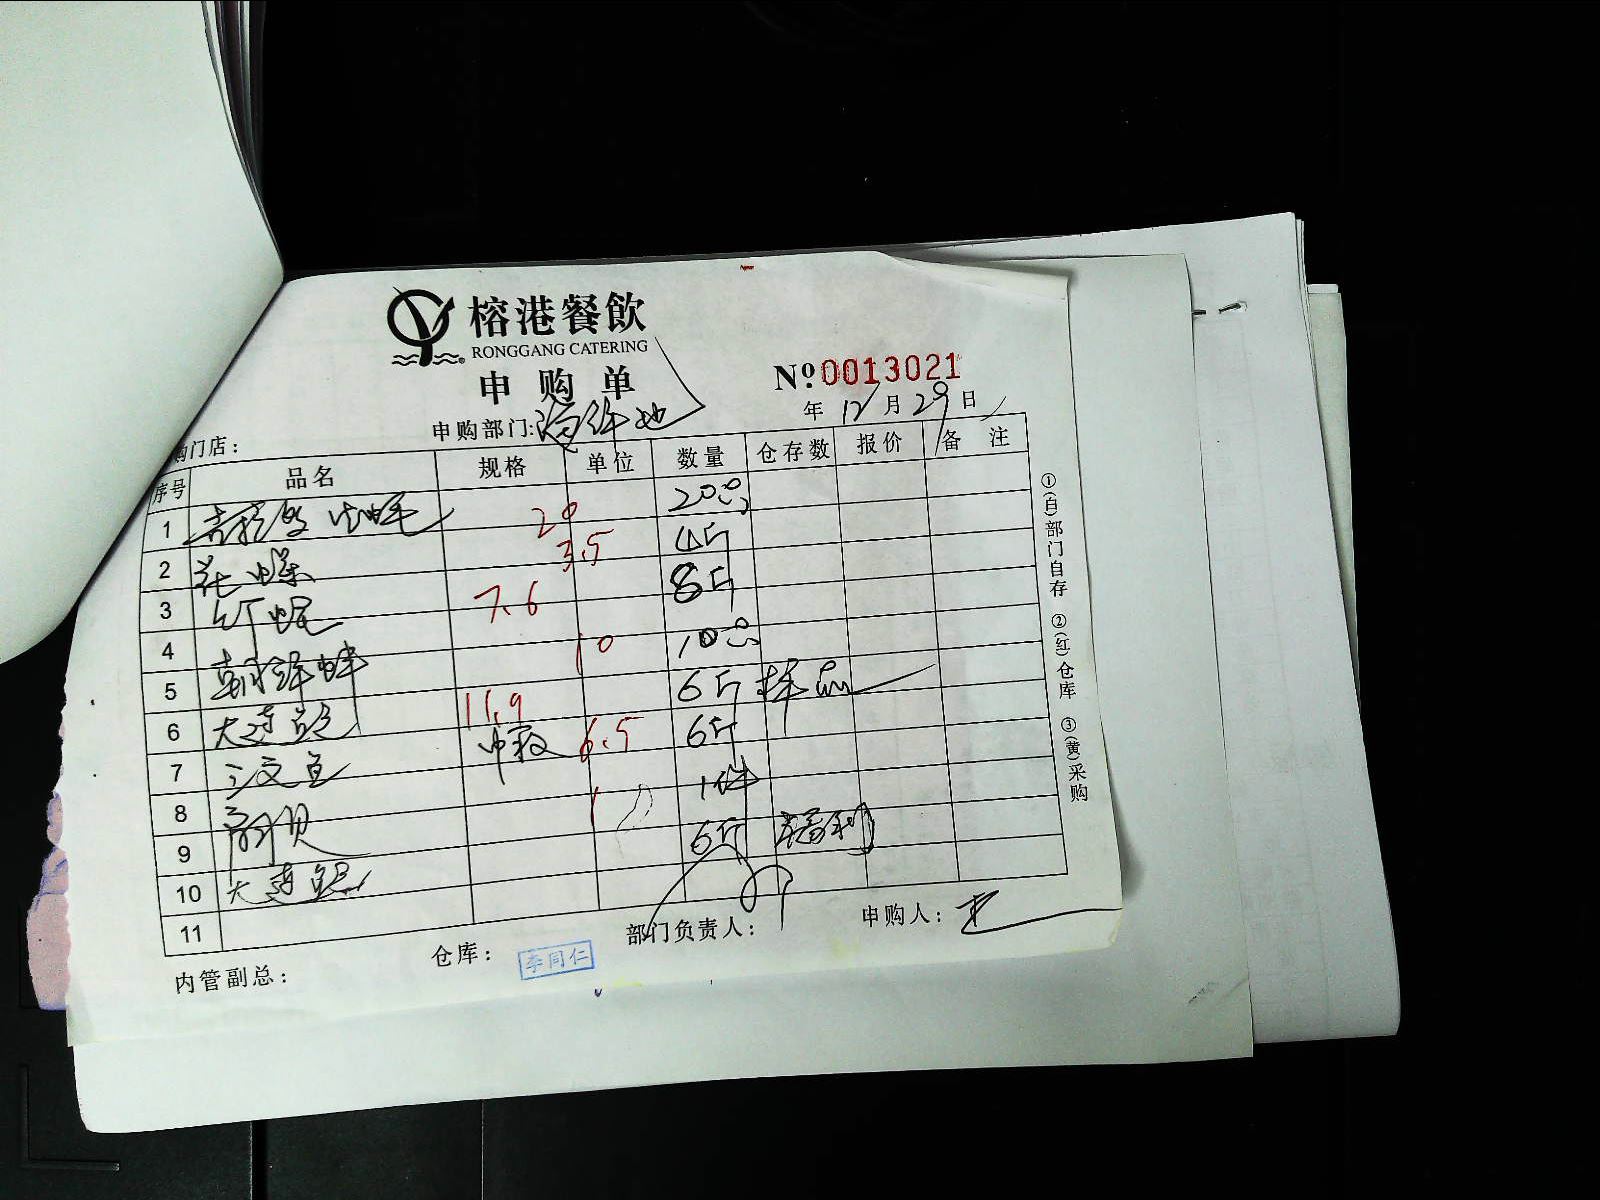 榕港餐飲
RONGGANG CATERING
申购单
№ 0013021
年 12 月 29 日
购门店：
申购部门：海鲜池
序号 品名 规格 单位 数量 仓存数 报价 备注
1 吉拉多生蚝 20 20只
2 花螺 3.5 4斤
3 7.6 8斤
4 10 10只
5 6斤 样品
6 大连鲍 11.9 6斤
7 三文鱼 中 6.5 1件
8 1 6斤 福利
9
10 大连鲍
11
仓库： 李同仁
部门负责人：
申购人：
内管副总：
①(白)部门自存 ②(红)仓库 ③(黄)采购